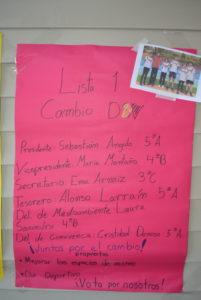 Lista 1
Cambio D
Presidente Sebastián Angulo 5ºA
Vicepresidente María Montaño 4ºB
Secretario Ema Arnaiz 3ºC
Tesorero Alonso Larraín 5ºA
Del de Medioambiente Laura
4ºB
Del de convivencia: Cristobal Donoso 5ºA
¡Juntos por el cambio!
Propuestas
• Mejorar los espacios de recreo
• Día Deportivo
¡Vota por nosotros!